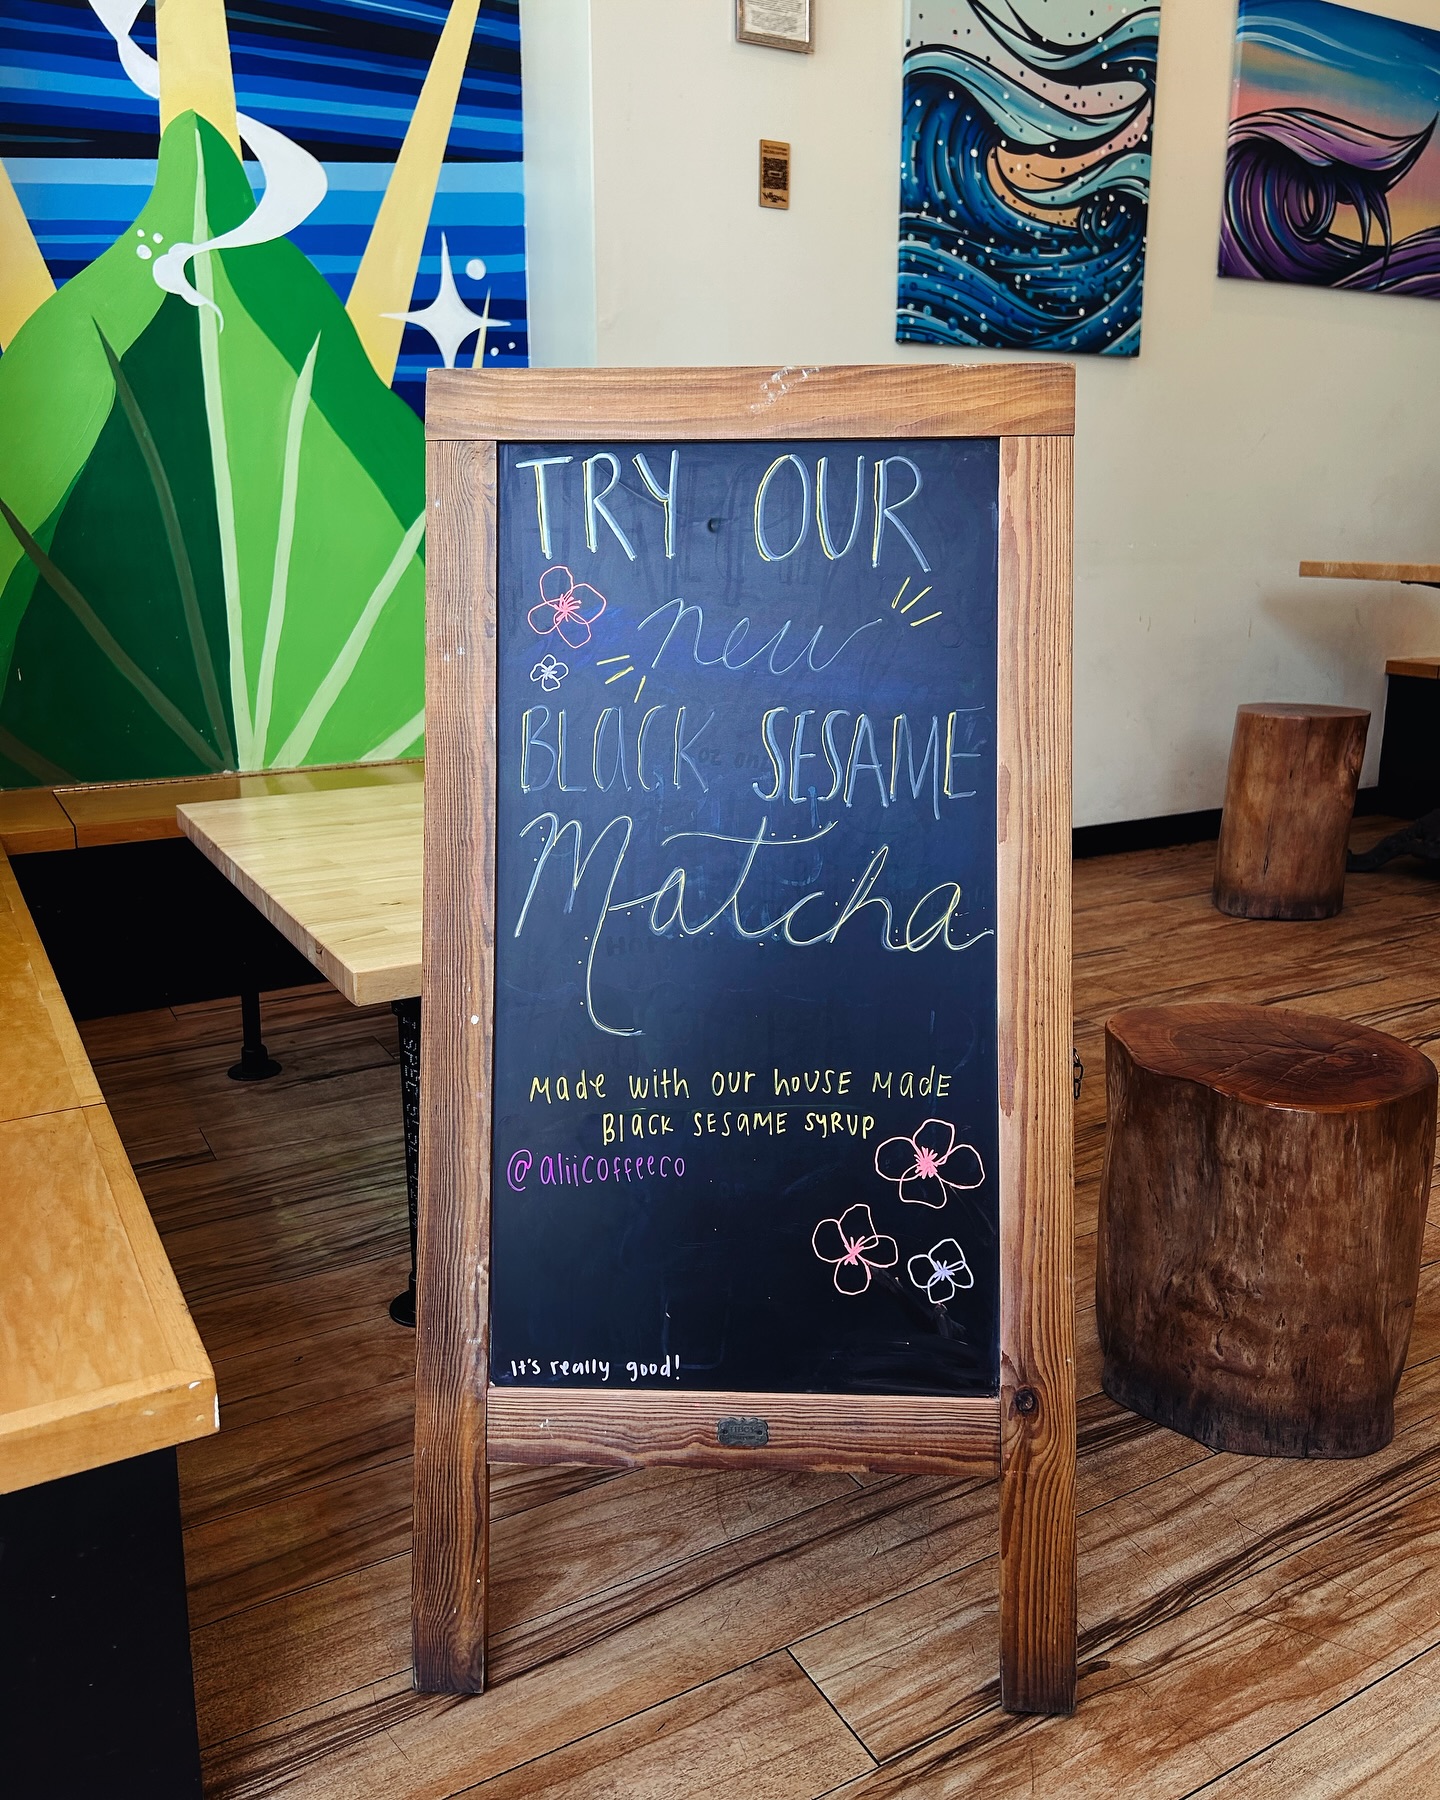 TRY OUR
new
BLACK SESAME
Matcha
Made with our house made
Black sesame syrup
@aliicoffeeco
It's really good!